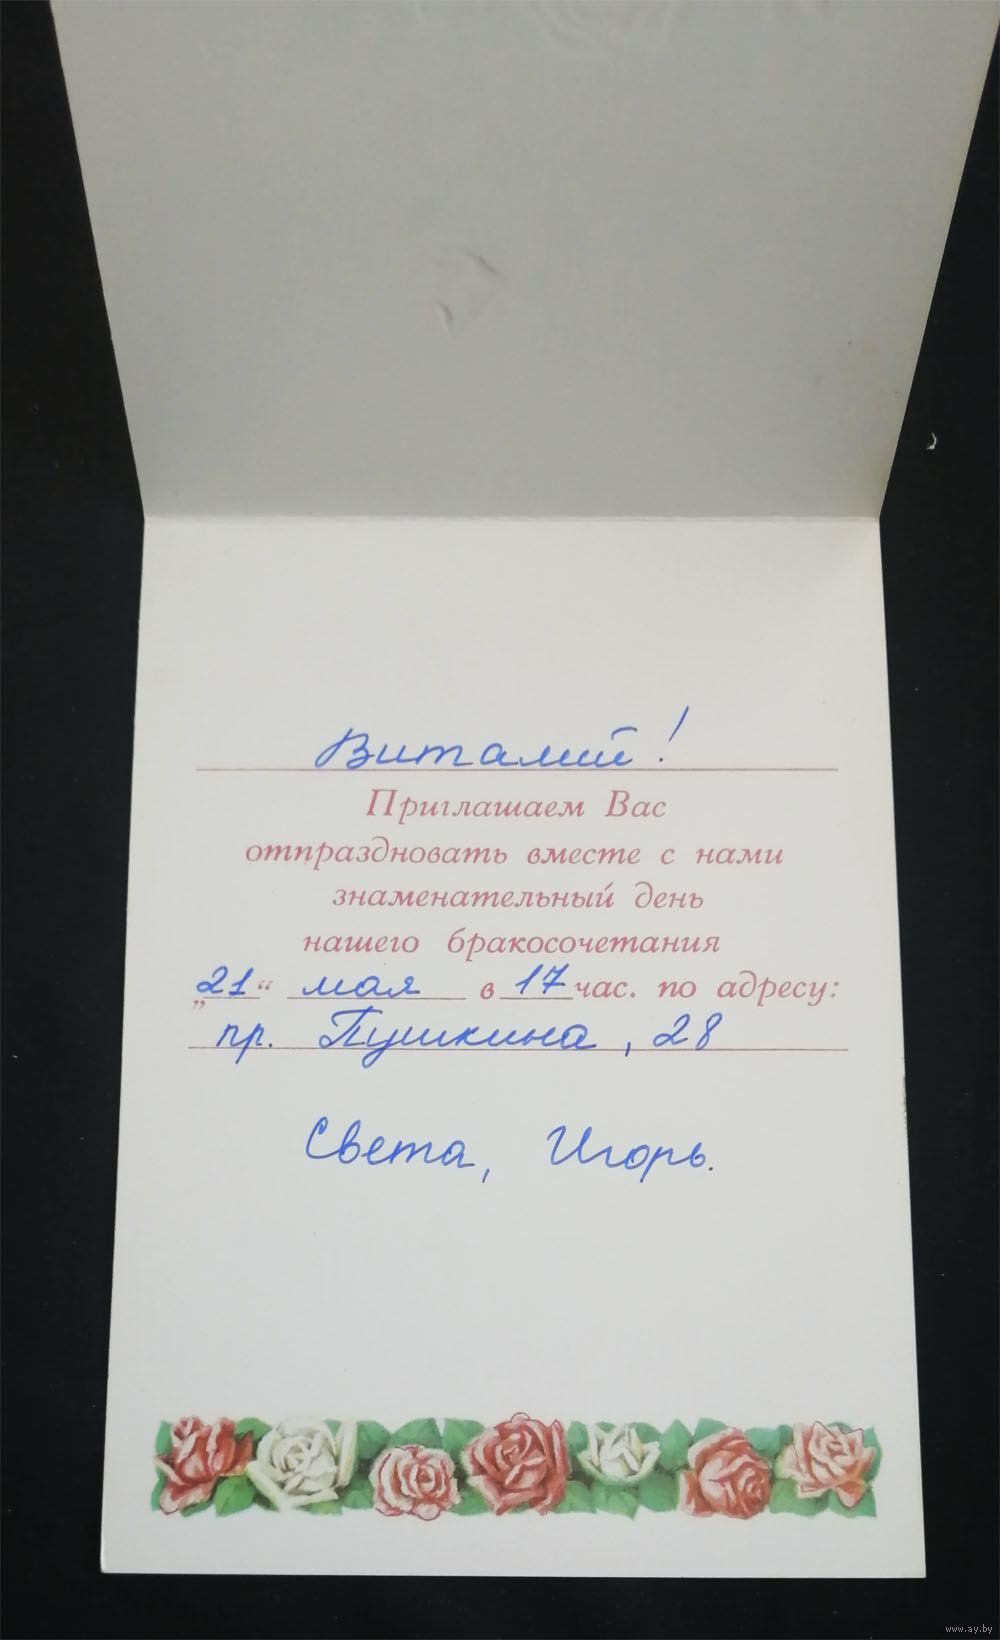 Виталий!
Приглашаем Вас
отпраздновать вместе с нами
знаменательный день
нашего бракосочетания
„21“ мая в 17 час. по адресу:
пр. Пушкина, 28
Света, Игорь.
www.ay.by